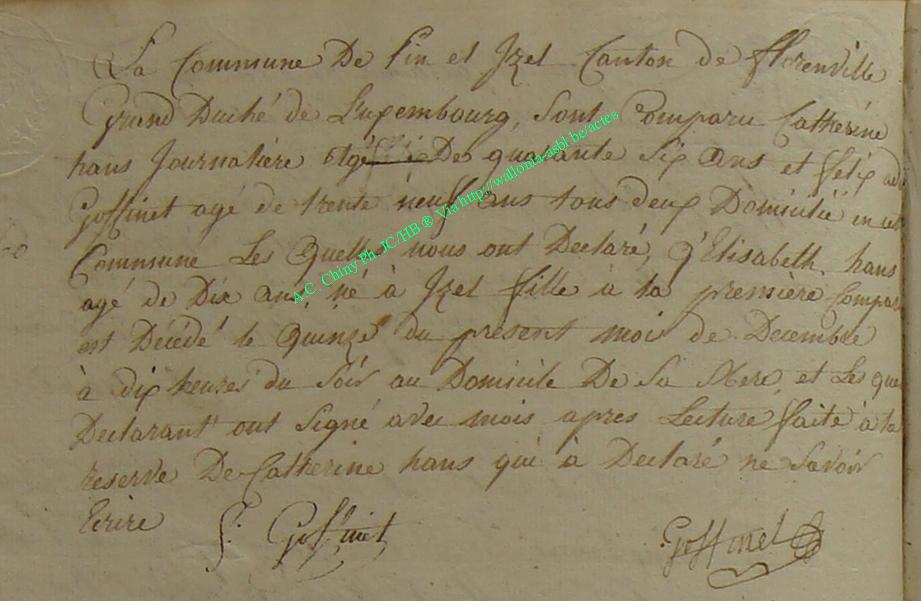 La Commune De Pin et Izel Canton de florenville
Grand Duché de Luxembourg, sont Comparu Cathérine
hans Journalière agé De quarante six ans et felix
Goffinet agé de trente neuff ans tous deux Domicilié en cet
Commune Les Quelles nous ont Declaré, q'Elisabeth hans
agé de Dix ans né à Izel fille à la première Compar
est Décédé le Quinze du présent mois de Decembre
à dix heures du Soir au Domicile De Sa Mere et Les que
Declarant ont Signé avec mois apres Lecture faite à la
reserve De Catherine hans qui à Declaré ne Savoir
Ecrire
f: Goffinet Goffinet
A.C. Chiny Ph. JC/HB ® Via http://wallonia-asbl.be/actes